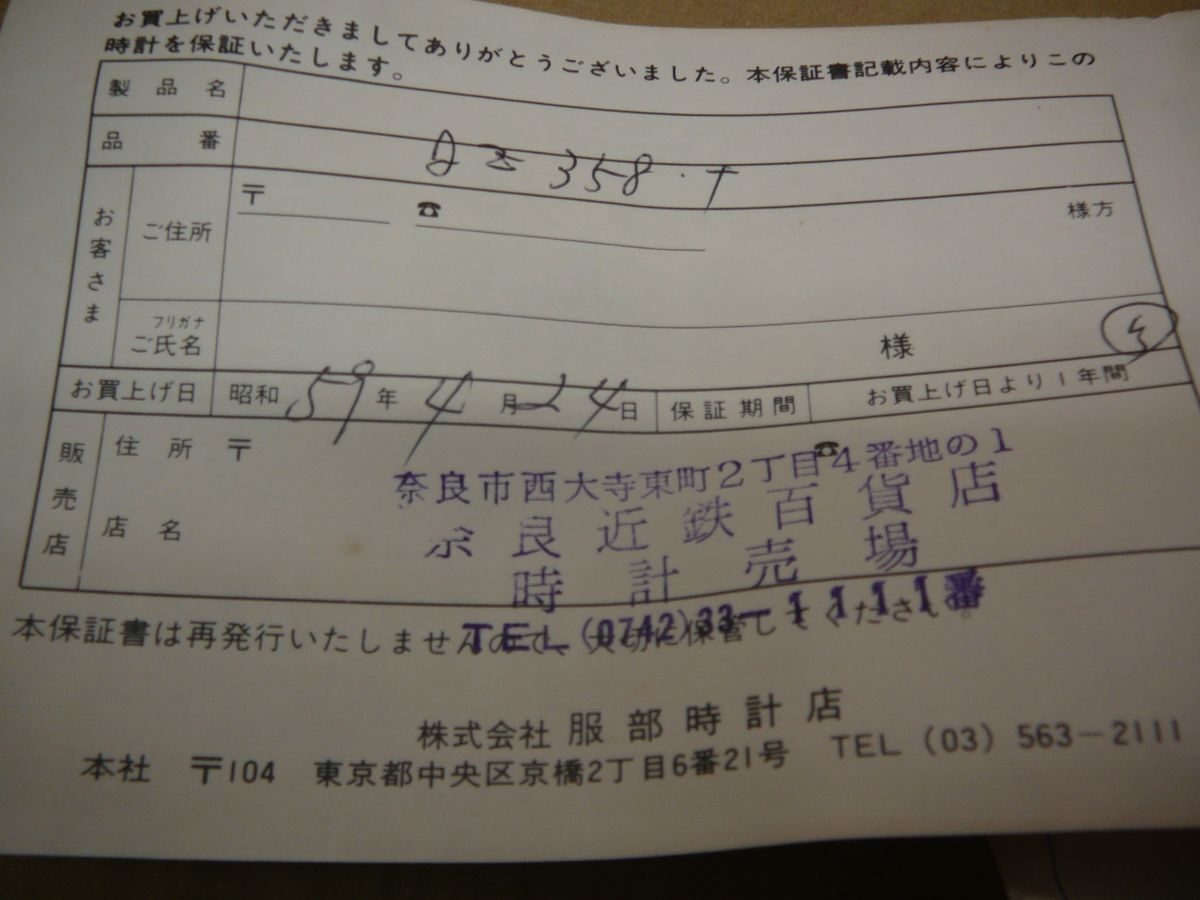 お買上げいただきましてありがとうございました。本保証書記載内容によりこの
時計を保証いたします。
製品名
品番 358.T
お客さま
ご住所 〒 ☎ 様方
フリガナ
ご氏名 様
お買上げ日 昭和59年4月24日 保証期間 お買上げ日より1年間
販売店
住所 〒 ☎
奈良市西大寺東町2丁目4番地の1
店名
奈良近鉄百貨店
時計売場
TEL(0742)33-1111番
本保証書は再発行いたしませんので、大切に保管してください。
株式会社 服部時計店
本社 〒104 東京都中央区京橋2丁目6番21号 TEL (03) 563-2111